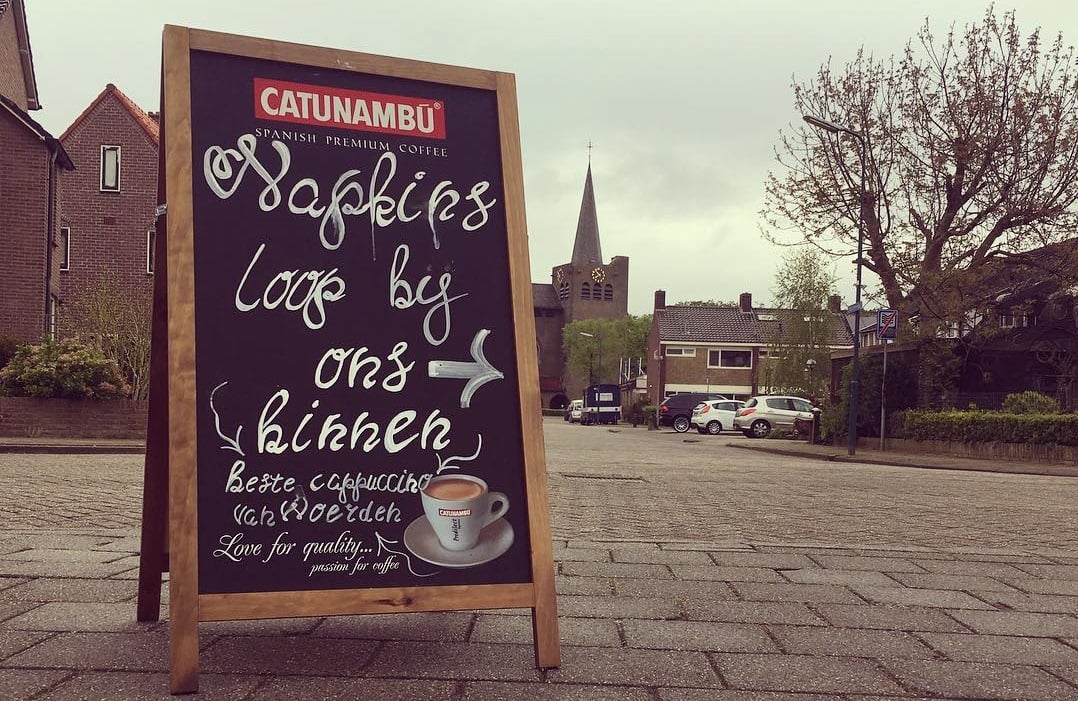 CATUNAMBÚ®
SPANISH PREMIUM COFFEE
Napkins
loop bij
ons
binnen
Beste cappuccino
van Woerden
Love for quality...
passion for coffee
CATUNAMBÚ